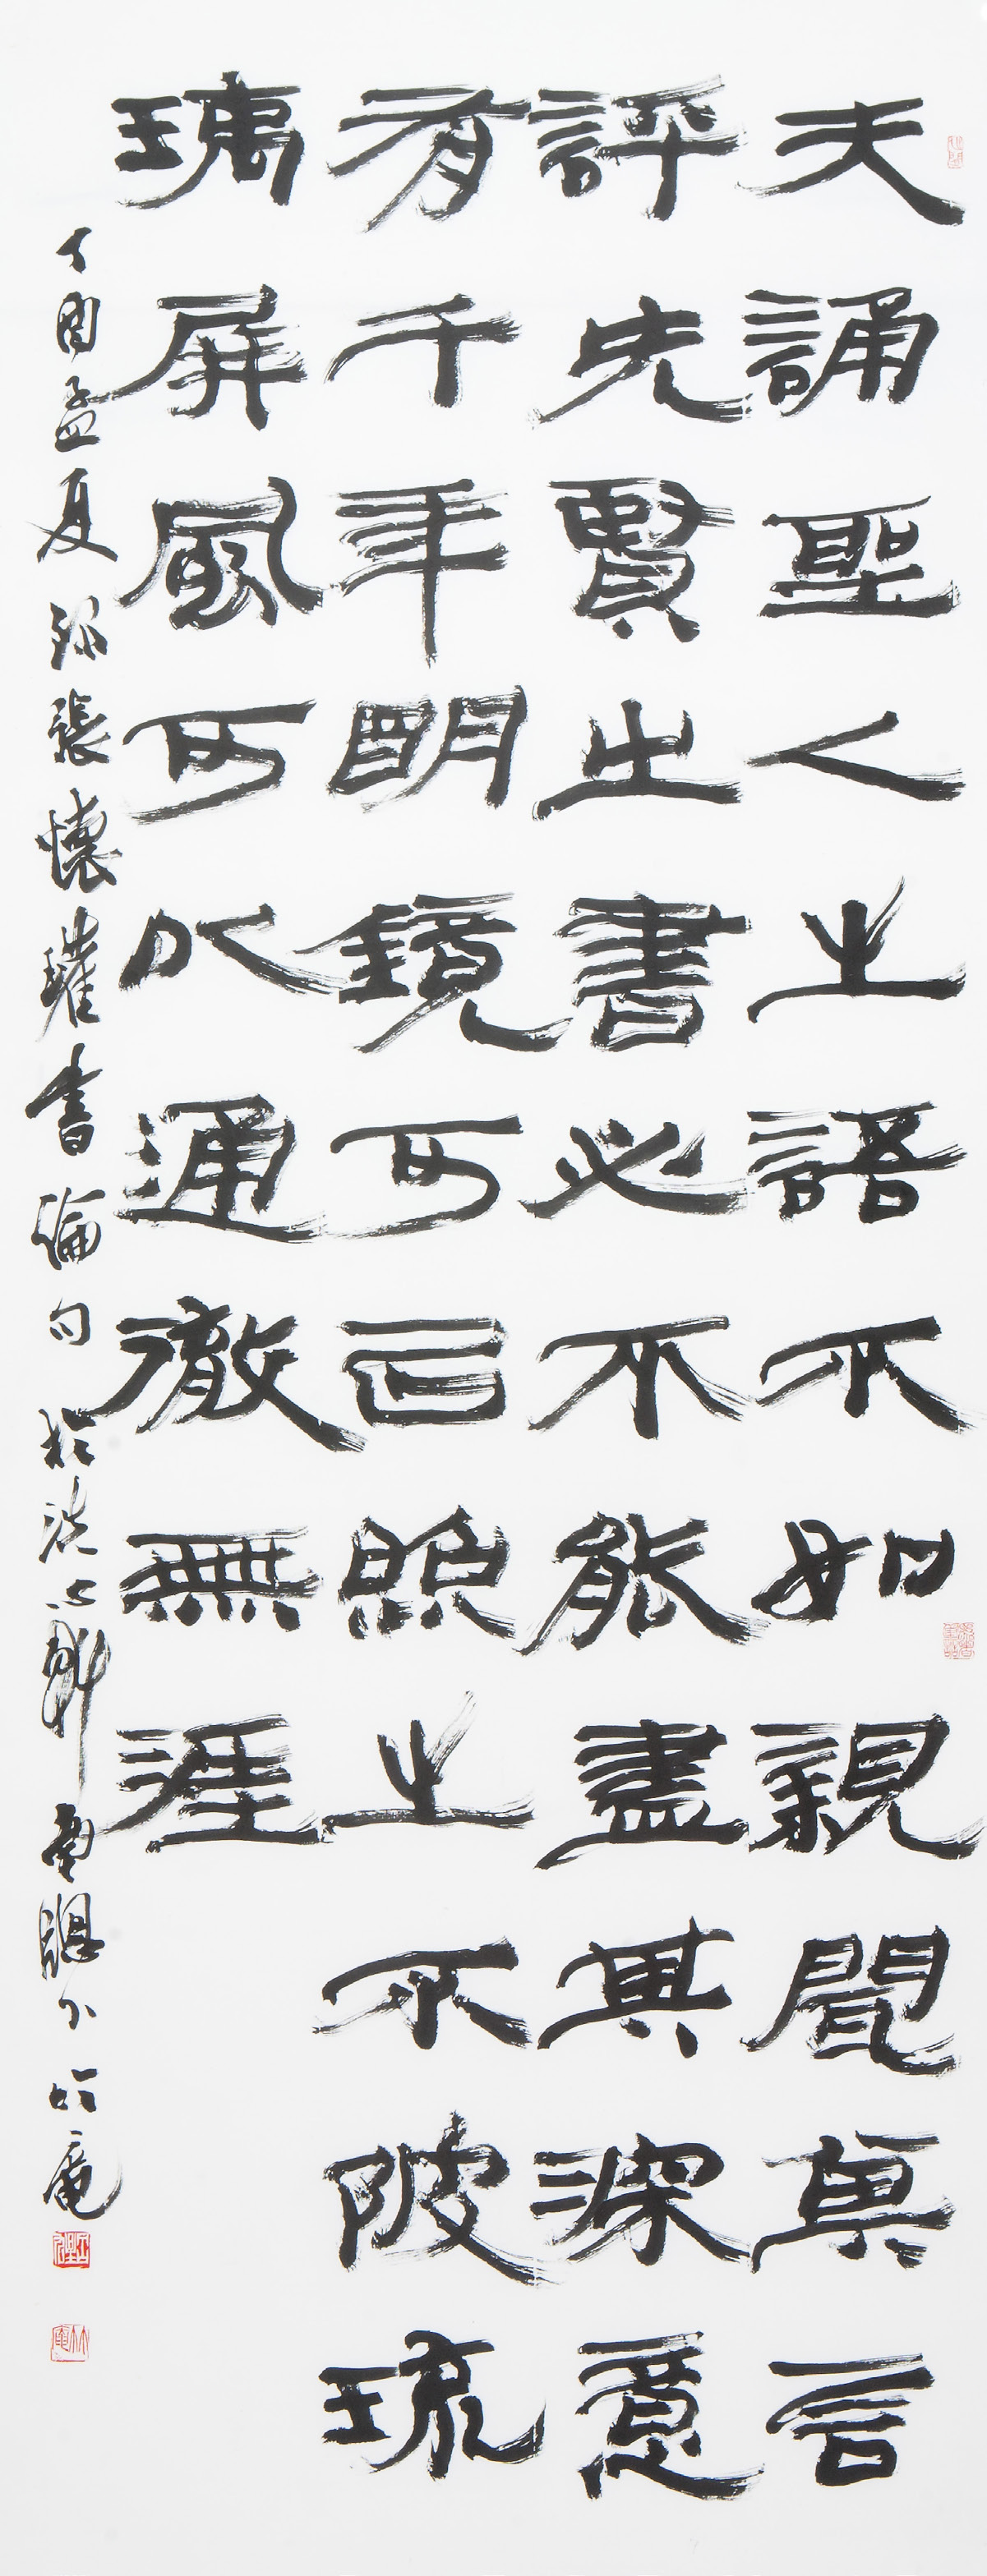 夫誦聖人之語不如親聞其言
評先賢之書必不能盡其深意
有千年明鏡可以照之不陂琉
璃屏風可以通徹無涯
丁酉孟夏孫張懷瓘書論句於洗心軒